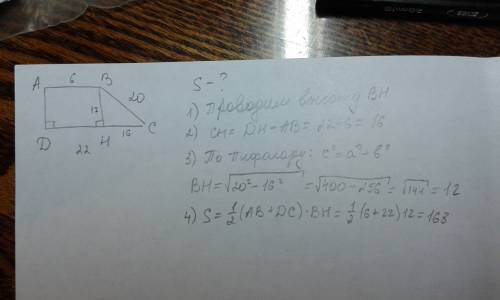 A 6 B
20
12
D H 16 C
22
S - ?
1) Проводим высоту BH
2) CH = DH - AB = 22 - 6 = 16
3) По Пифагору: c² = a² - b²
BH = √20² - 16² = √400 - 256 = √144 = 12
4) S = 1/2 (AB + DC) · BH = 1/2 (6 + 22) 12 = 168